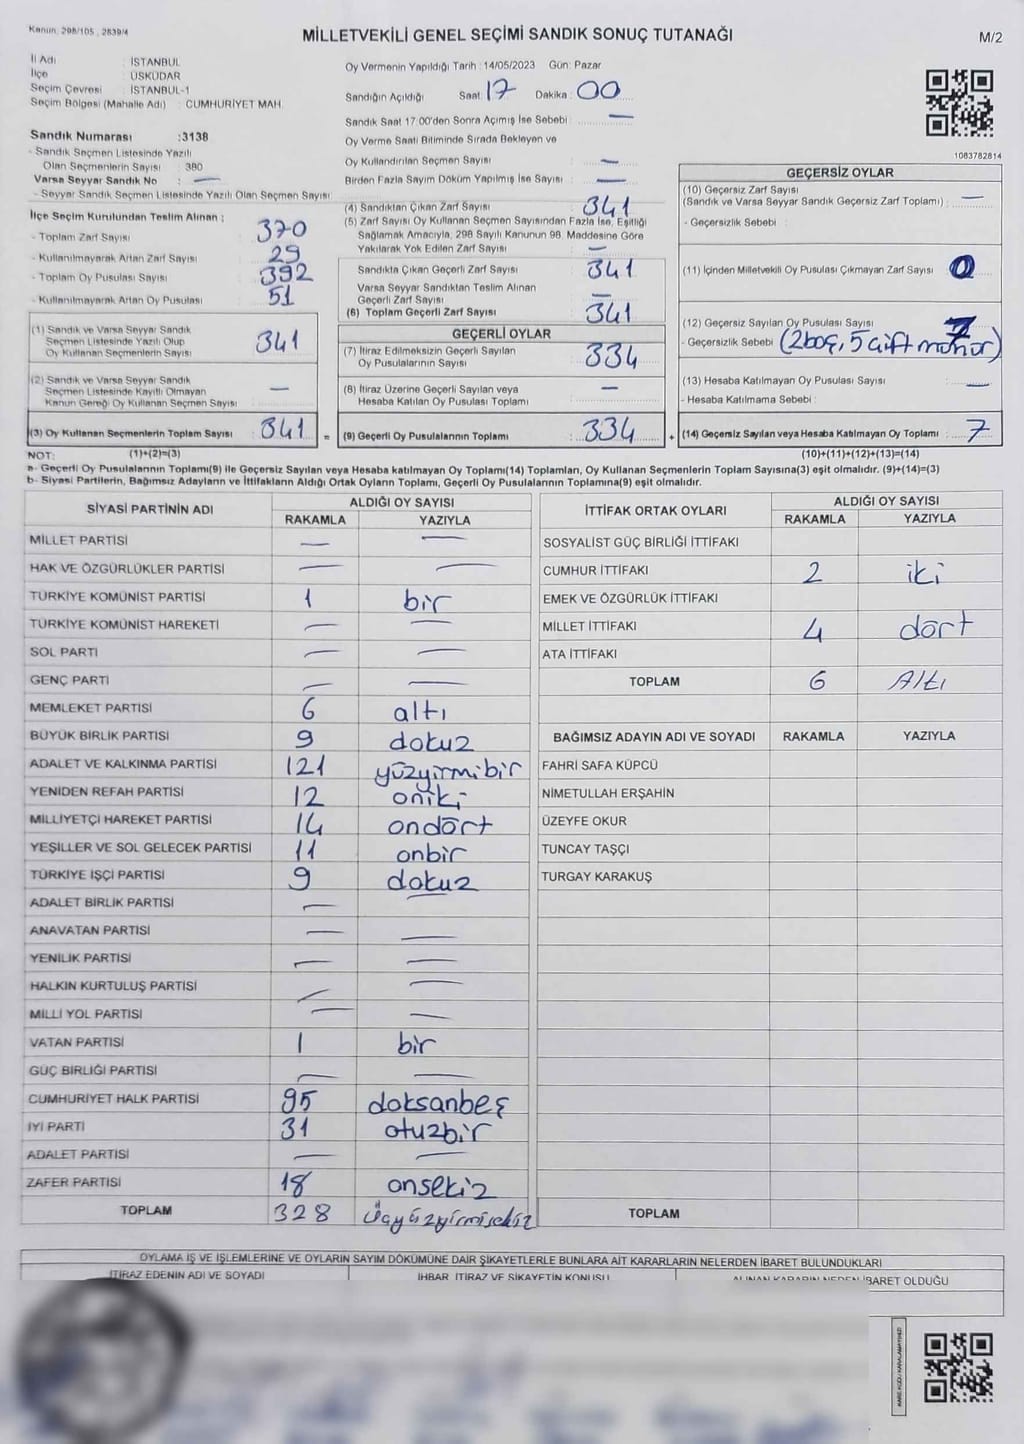 Kanun: 298/105 , 2839/4
MİLLETVEKİLİ GENEL SEÇİMİ SANDIK SONUÇ TUTANAĞI
M/2
İl Adı : İSTANBUL
İlçe : ÜSKÜDAR
Seçim Çevresi : İSTANBUL-1
Seçim Bölgesi (Mahalle Adı) : CUMHURİYET MAH.
Sandık Numarası :3138
- Sandık Seçmen Listesinde Yazılı
Olan Seçmenlerin Sayısı : 380
Varsa Seyyar Sandık No : —
- Seyyar Sandık Seçmen Listesinde Yazılı Olan Seçmen Sayısı
İlçe Seçim Kurulundan Teslim Alınan :
- Toplam Zarf Sayısı 370
- Kullanılmayarak Artan Zarf Sayısı 29
- Toplam Oy Pusulası Sayısı 392
- Kullanılmayarak Artan Oy Pusulası 51
(1) Sandık ve Varsa Seyyar Sandık
Seçmen Listesinde Yazılı Olup
Oy Kullanan Seçmenlerin Sayısı 341
(2) Sandık ve Varsa Seyyar Sandık
Seçmen Listesinde Kayıtlı Olmayan
Kanun Gereği Oy Kullanan Seçmen Sayısı : —
(3) Oy Kullanan Seçmenlerin Toplam Sayısı : 341 =
Oy Vermenin Yapıldığı Tarih : 14/05/2023 Gün: Pazar
Sandığın Açıldığı Saat : 17 Dakika : 00
Sandık Saat 17:00'den Sonra Açımış İse Sebebi : —
Oy Verme Saati Bitiminde Sırada Bekleyen ve
Oy Kullandırılan Seçmen Sayısı : —
Birden Fazla Sayım Döküm Yapılmış İse Sayısı : —
(4) Sandıktan Çıkan Zarf Sayısı : 341
(5) Zarf Sayısı Oy Kullanan Seçmen Sayısından Fazla İse, Eşitliği
Sağlamak Amacıyla, 298 Sayılı Kanunun 98. Maddesine Göre
Yakılarak Yok Edilen Zarf Sayısı : —
Sandıkta Çıkan Geçerli Zarf Sayısı : 341
Varsa Seyyar Sandıktan Teslim Alınan
Geçerli Zarf Sayısı : —
(6) Toplam Geçerli Zarf Sayısı : 341
GEÇERLİ OYLAR
(7) İtiraz Edilmeksizin Geçerli Sayılan
Oy Pusulalarının Sayısı : 334
(8) İtiraz Üzerine Geçerli Sayılan veya
Hesaba Katılan Oy Pusulası Toplamı : —
(9) Geçerli Oy Pusulalarının Toplamı : 334 +
1083782814
GEÇERSİZ OYLAR
(10) Geçersiz Zarf Sayısı
(Sandık ve Varsa Seyyar Sandık Geçersiz Zarf Toplamı) : —
- Geçersizlik Sebebi :
(11) İçinden Milletvekili Oy Pusulası Çıkmayan Zarf Sayısı : 0
(12) Geçersiz Sayılan Oy Pusulası Sayısı 7
- Geçersizlik Sebebi (2boş, 5 çift mühür)
(13) Hesaba Katılmayan Oy Pusulası Sayısı : —
- Hesaba Katılmama Sebebi :
(14) Geçersiz Sayılan veya Hesaba Katılmayan Oy Toplamı : 7
NOT: (1)+(2)=(3) (10)+(11)+(12)+(13)=(14)
a- Geçerli Oy Pusulalarının Toplamı(9) ile Geçersiz Sayılan veya Hesaba katılmayan Oy Toplamı(14) Toplamları, Oy Kullanan Seçmenlerin Toplam Sayısına(3) eşit olmalıdır. (9)+(14)=(3)
b- Siyasi Partilerin, Bağımsız Adayların ve İttifakların Aldığı Ortak Oyların Toplamı, Geçerli Oy Pusulalarının Toplamına(9) eşit olmalıdır.
SİYASİ PARTİNİN ADI ALDIĞI OY SAYISI
RAKAMLA YAZIYLA
MİLLET PARTİSİ — —
HAK VE ÖZGÜRLÜKLER PARTİSİ — —
TÜRKİYE KOMÜNİST PARTİSİ 1 bir
TÜRKİYE KOMÜNİST HAREKETİ — —
SOL PARTİ — —
GENÇ PARTİ — —
MEMLEKET PARTİSİ 6 altı
BÜYÜK BİRLİK PARTİSİ 9 dokuz
ADALET VE KALKINMA PARTİSİ 121 yüzyirmibir
YENİDEN REFAH PARTİSİ 12 oniki
MİLLİYETÇİ HAREKET PARTİSİ 14 ondört
YEŞİLLER VE SOL GELECEK PARTİSİ 11 onbir
TÜRKİYE İŞÇİ PARTİSİ 9 dokuz
ADALET BİRLİK PARTİSİ —
ANAVATAN PARTİSİ — —
YENİLİK PARTİSİ — —
HALKIN KURTULUŞ PARTİSİ — —
MİLLİ YOL PARTİSİ — —
VATAN PARTİSİ 1 bir
GÜÇ BİRLİĞİ PARTİSİ — —
CUMHURİYET HALK PARTİSİ 95 doksanbeş
İYİ PARTİ 31 otuzbir
ADALET PARTİSİ — —
ZAFER PARTİSİ 18 onsekiz
TOPLAM 328 üçyüzyirmisekiz
İTTİFAK ORTAK OYLARI ALDIĞI OY SAYISI
RAKAMLA YAZIYLA
SOSYALİST GÜÇ BİRLİĞİ İTTİFAKI
CUMHUR İTTİFAKI 2 iki
EMEK VE ÖZGÜRLÜK İTTİFAKI
MİLLET İTTİFAKI 4 dört
ATA İTTİFAKI
TOPLAM 6 Altı
BAĞIMSIZ ADAYIN ADI VE SOYADI RAKAMLA YAZIYLA
FAHRİ SAFA KÜPCÜ
NİMETULLAH ERŞAHİN
ÜZEYFE OKUR
TUNCAY TAŞÇI
TURGAY KARAKUŞ
TOPLAM
OYLAMA İŞ VE İŞLEMLERİNE VE OYLARIN SAYIM DÖKÜMÜNE DAİR ŞİKAYETLERLE BUNLARA AİT KARARLARIN NELERDEN İBARET BULUNDUKLARI
İTİRAZ EDENİN ADI VE SOYADI İHBAR, İTİRAZ VE ŞİKAYETİN KONUSU ALINAN KARARIN NEDEN İBARET OLDUĞU